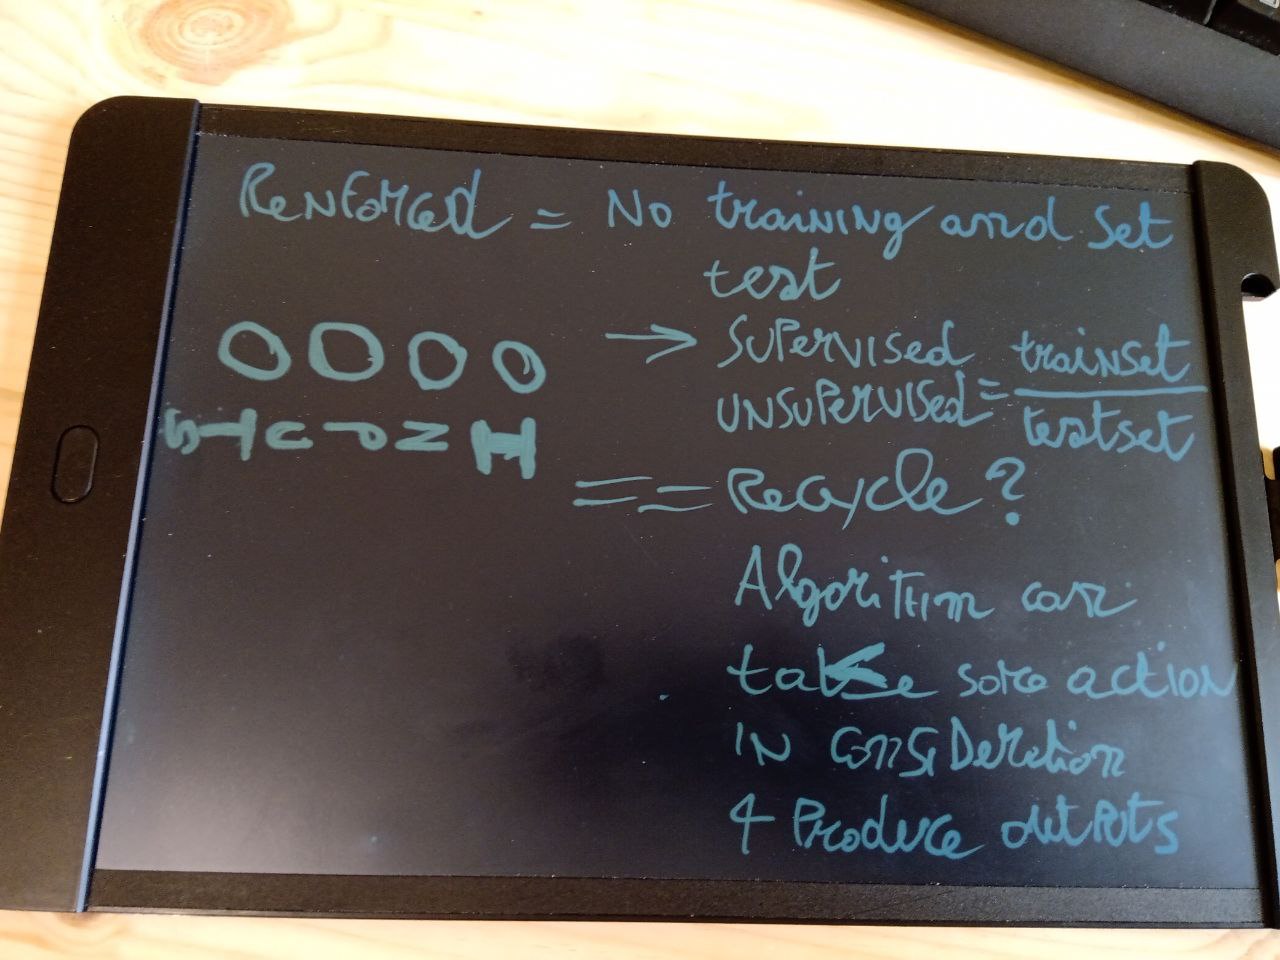 Renforced = No training and set
test
→ Supervised
Unsupervised = trainset
testset
== Recycle?
Algorithm can
take some action
in consideration
4 Produce outputs